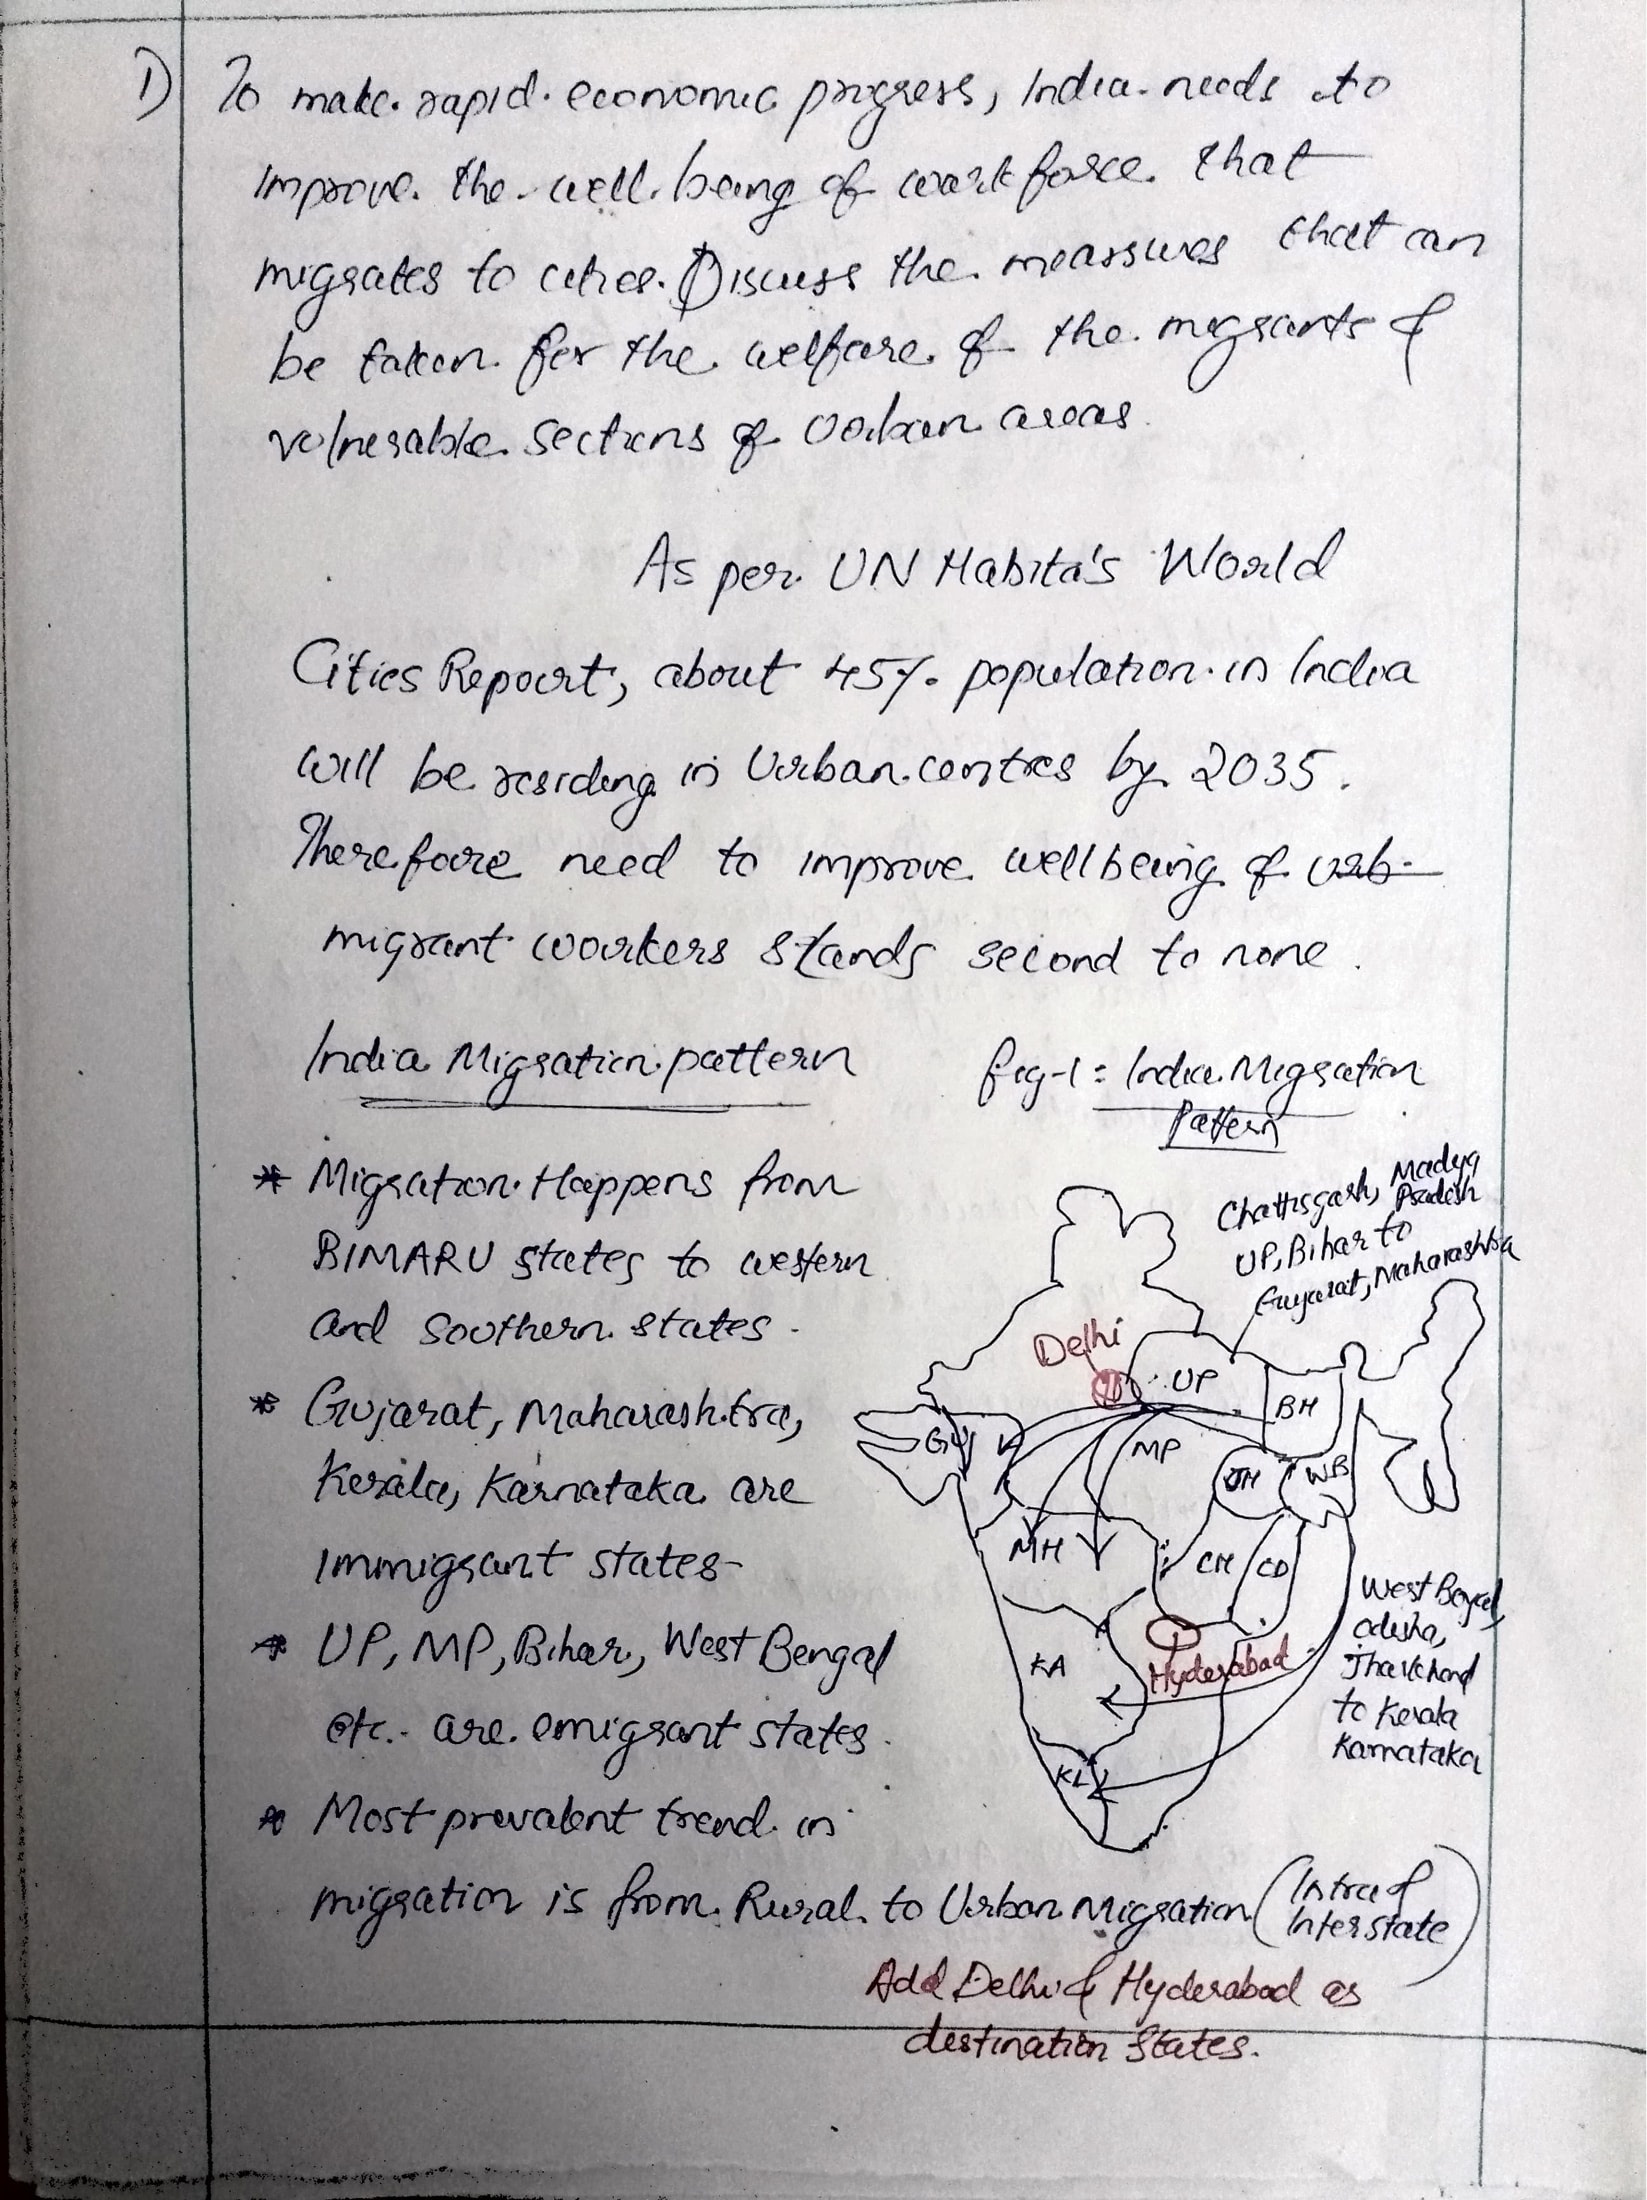 1) To make rapid economic progress, India needs to
improve the well being of workforce that
migrates to cities. Discuss the meassures that can
be taken for the welfare of the migrants &
vulnerable sections of Urban areas.
As per UN Habita's World
Cities Repoort, about 45% population in India
will be residing in Urban centres by 2035.
Therefoore need to improve wellbeing of urb-
migrant woorkers stands second to none.
India Migration pattern
fig-1: India Migration
Pattern
* Migration Happens from
BIMARU states to western
and Southern states.
* Gujarat, Maharashtra,
Kerala, Karnataka are
immigrant states-
* UP, MP, Bihar, West Bengal
etc. are emigrant states.
* Most prevalent trend in
migration is from Rural to Urban Migration (Intra &
Interstate)
Chattisgarh, Madya
Pradesh
UP, Bihar to
Gujarat, Maharashtra
Delhi
UP
BH
GUJ
MP
JH
WB
MH
CH
OD
KA
Hyderabad
KL
West Bengal,
odisha,
Jharkhand
to Kerala
Karnataka
Add Delhi & Hyderabad as
destination States.